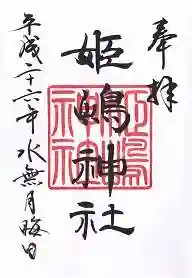 奉拝
姫嶋神社
姫嶋神社
平成二十六年水無月晦日